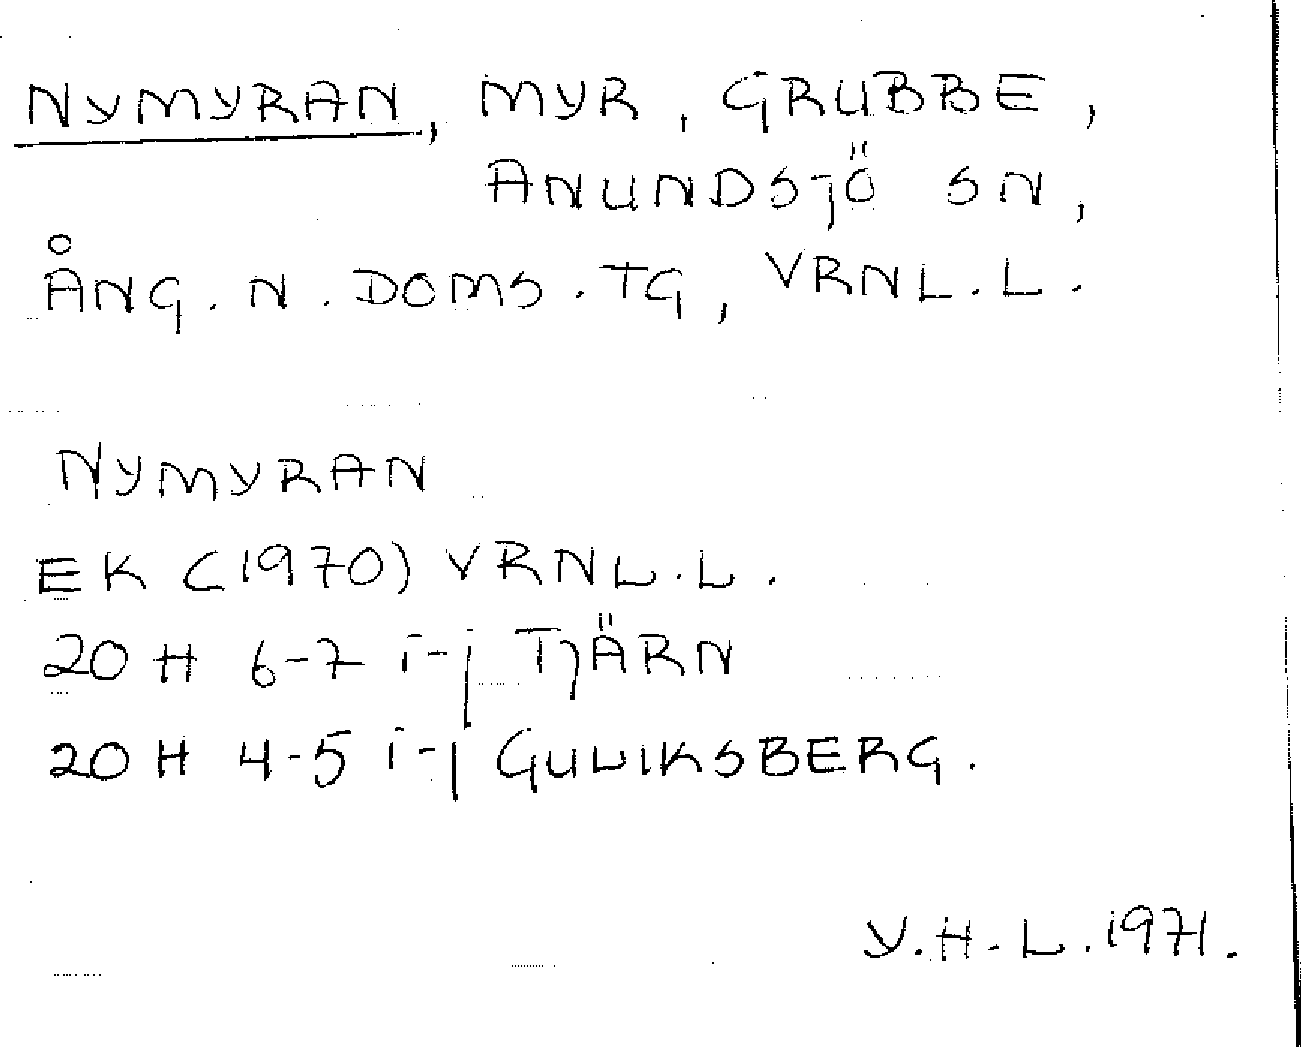 NYMYRAN, MYR, GRUBBE,
ANUNDSJÖ SN,
ÅNG. N. DOMS. TG, VRNL. L.
NYMYRAN
EK (1970) VRNL. L.
20 H 6-7 i-j TJÄRN
20 H 4-5 i-j GULIKSBERG.
Y. H. L. 1971.